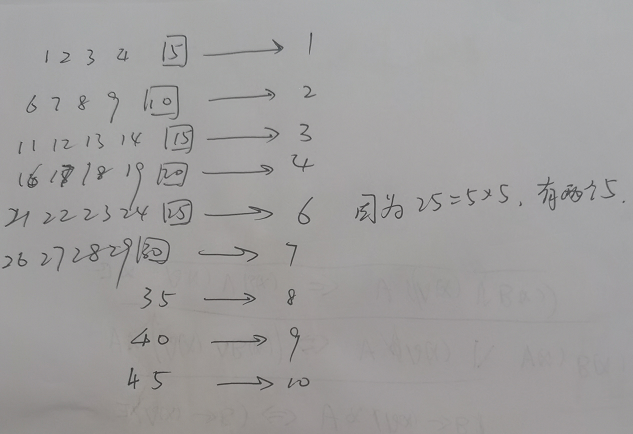 1 2 3 4 5 → 1
6 7 8 9 10 → 2
11 12 13 14 15 → 3
16 17 18 19 20 → 4
21 22 23 24 25 → 6 因为25=5×5,有两个5.
26 27 28 29 30 → 7
35 → 8
40 → 9
45 → 10